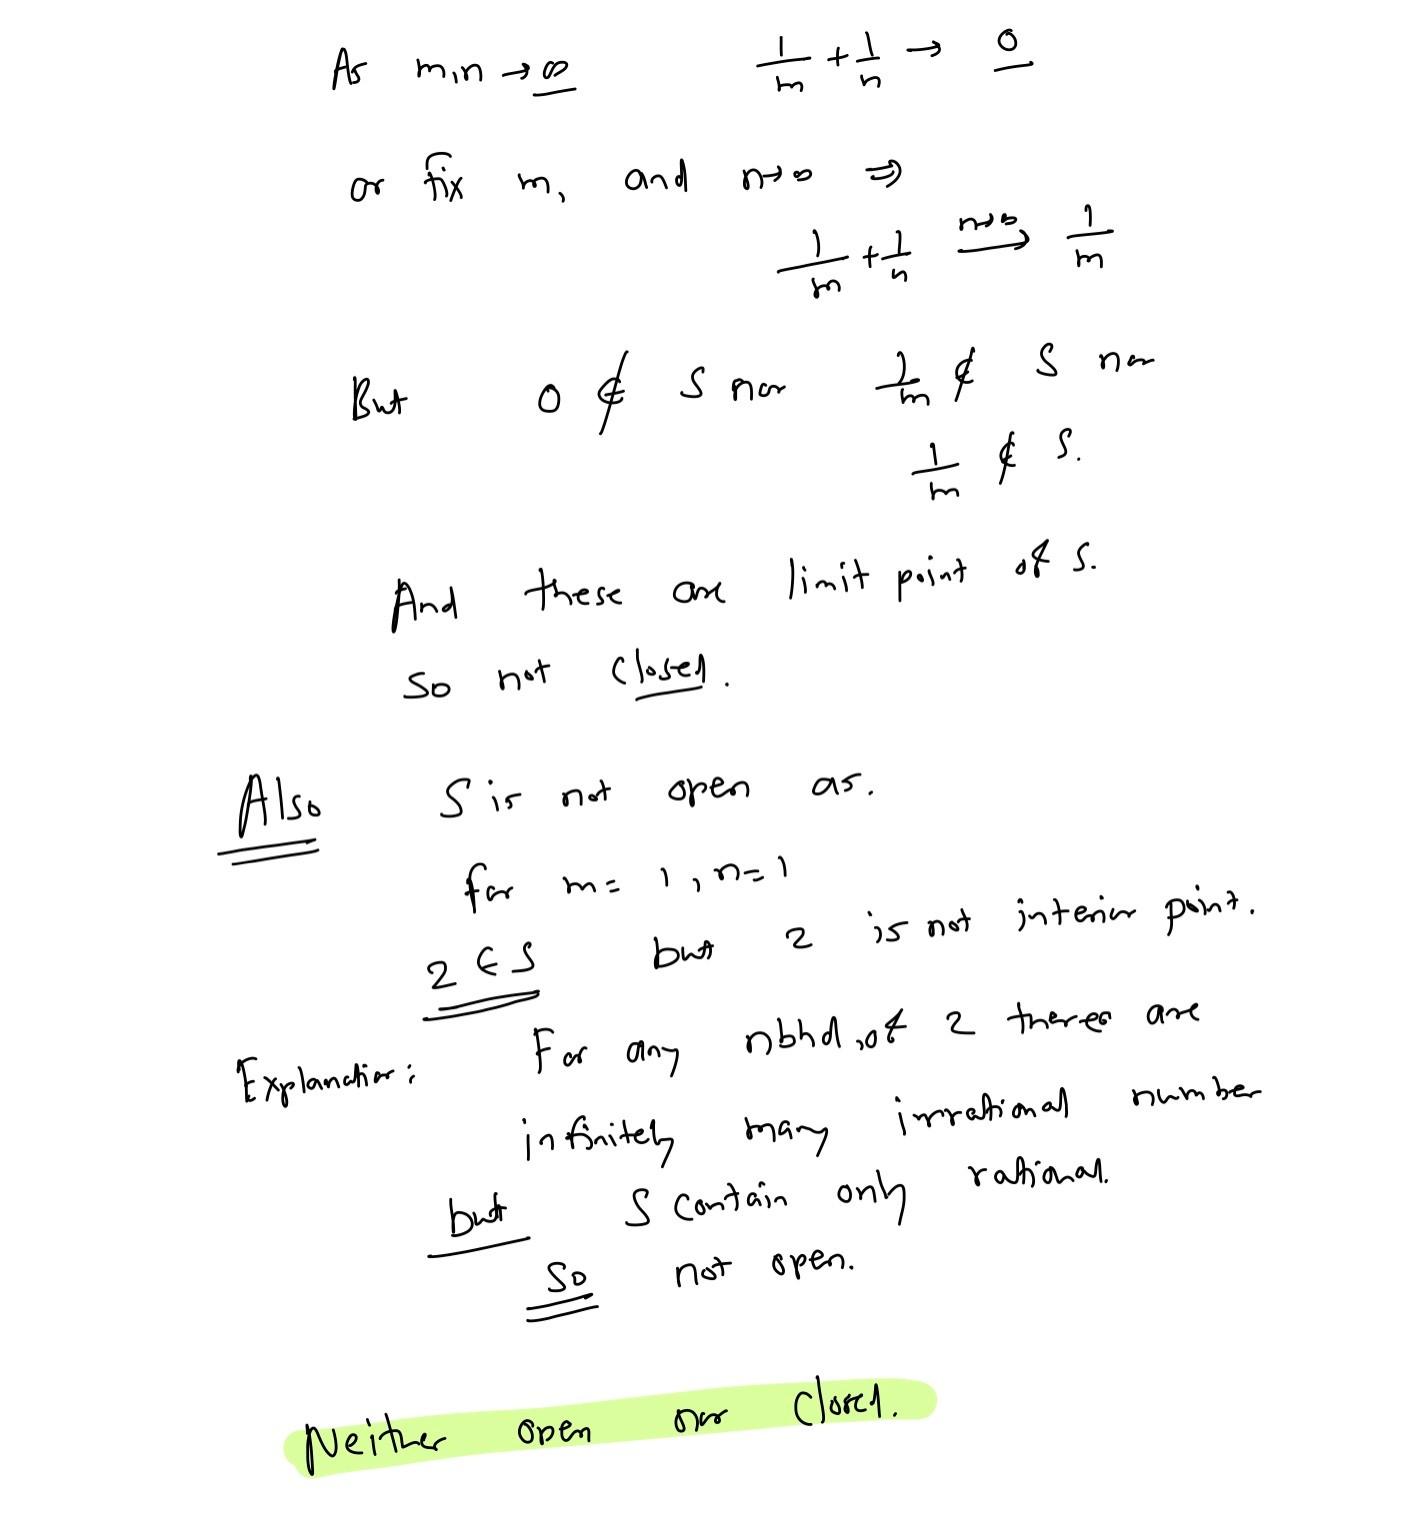 As m,n → ∞ 1/m + 1/n → 0
or fix m, and n→∞ ⇒
1/m + 1/n n→∞ → 1/m
But 0 ∉ S nor 1/m ∉ S nor
1/m ∉ S.
And these are limit point of S.
So not closed.
Also S is not open as.
for m = 1, n = 1
2 ∈ S but 2 is not interior point.
Explanation: For any nbhd, of 2 there are
infinitely many irrational number
but S contain only rational.
So not open.
Neither open nor closed.